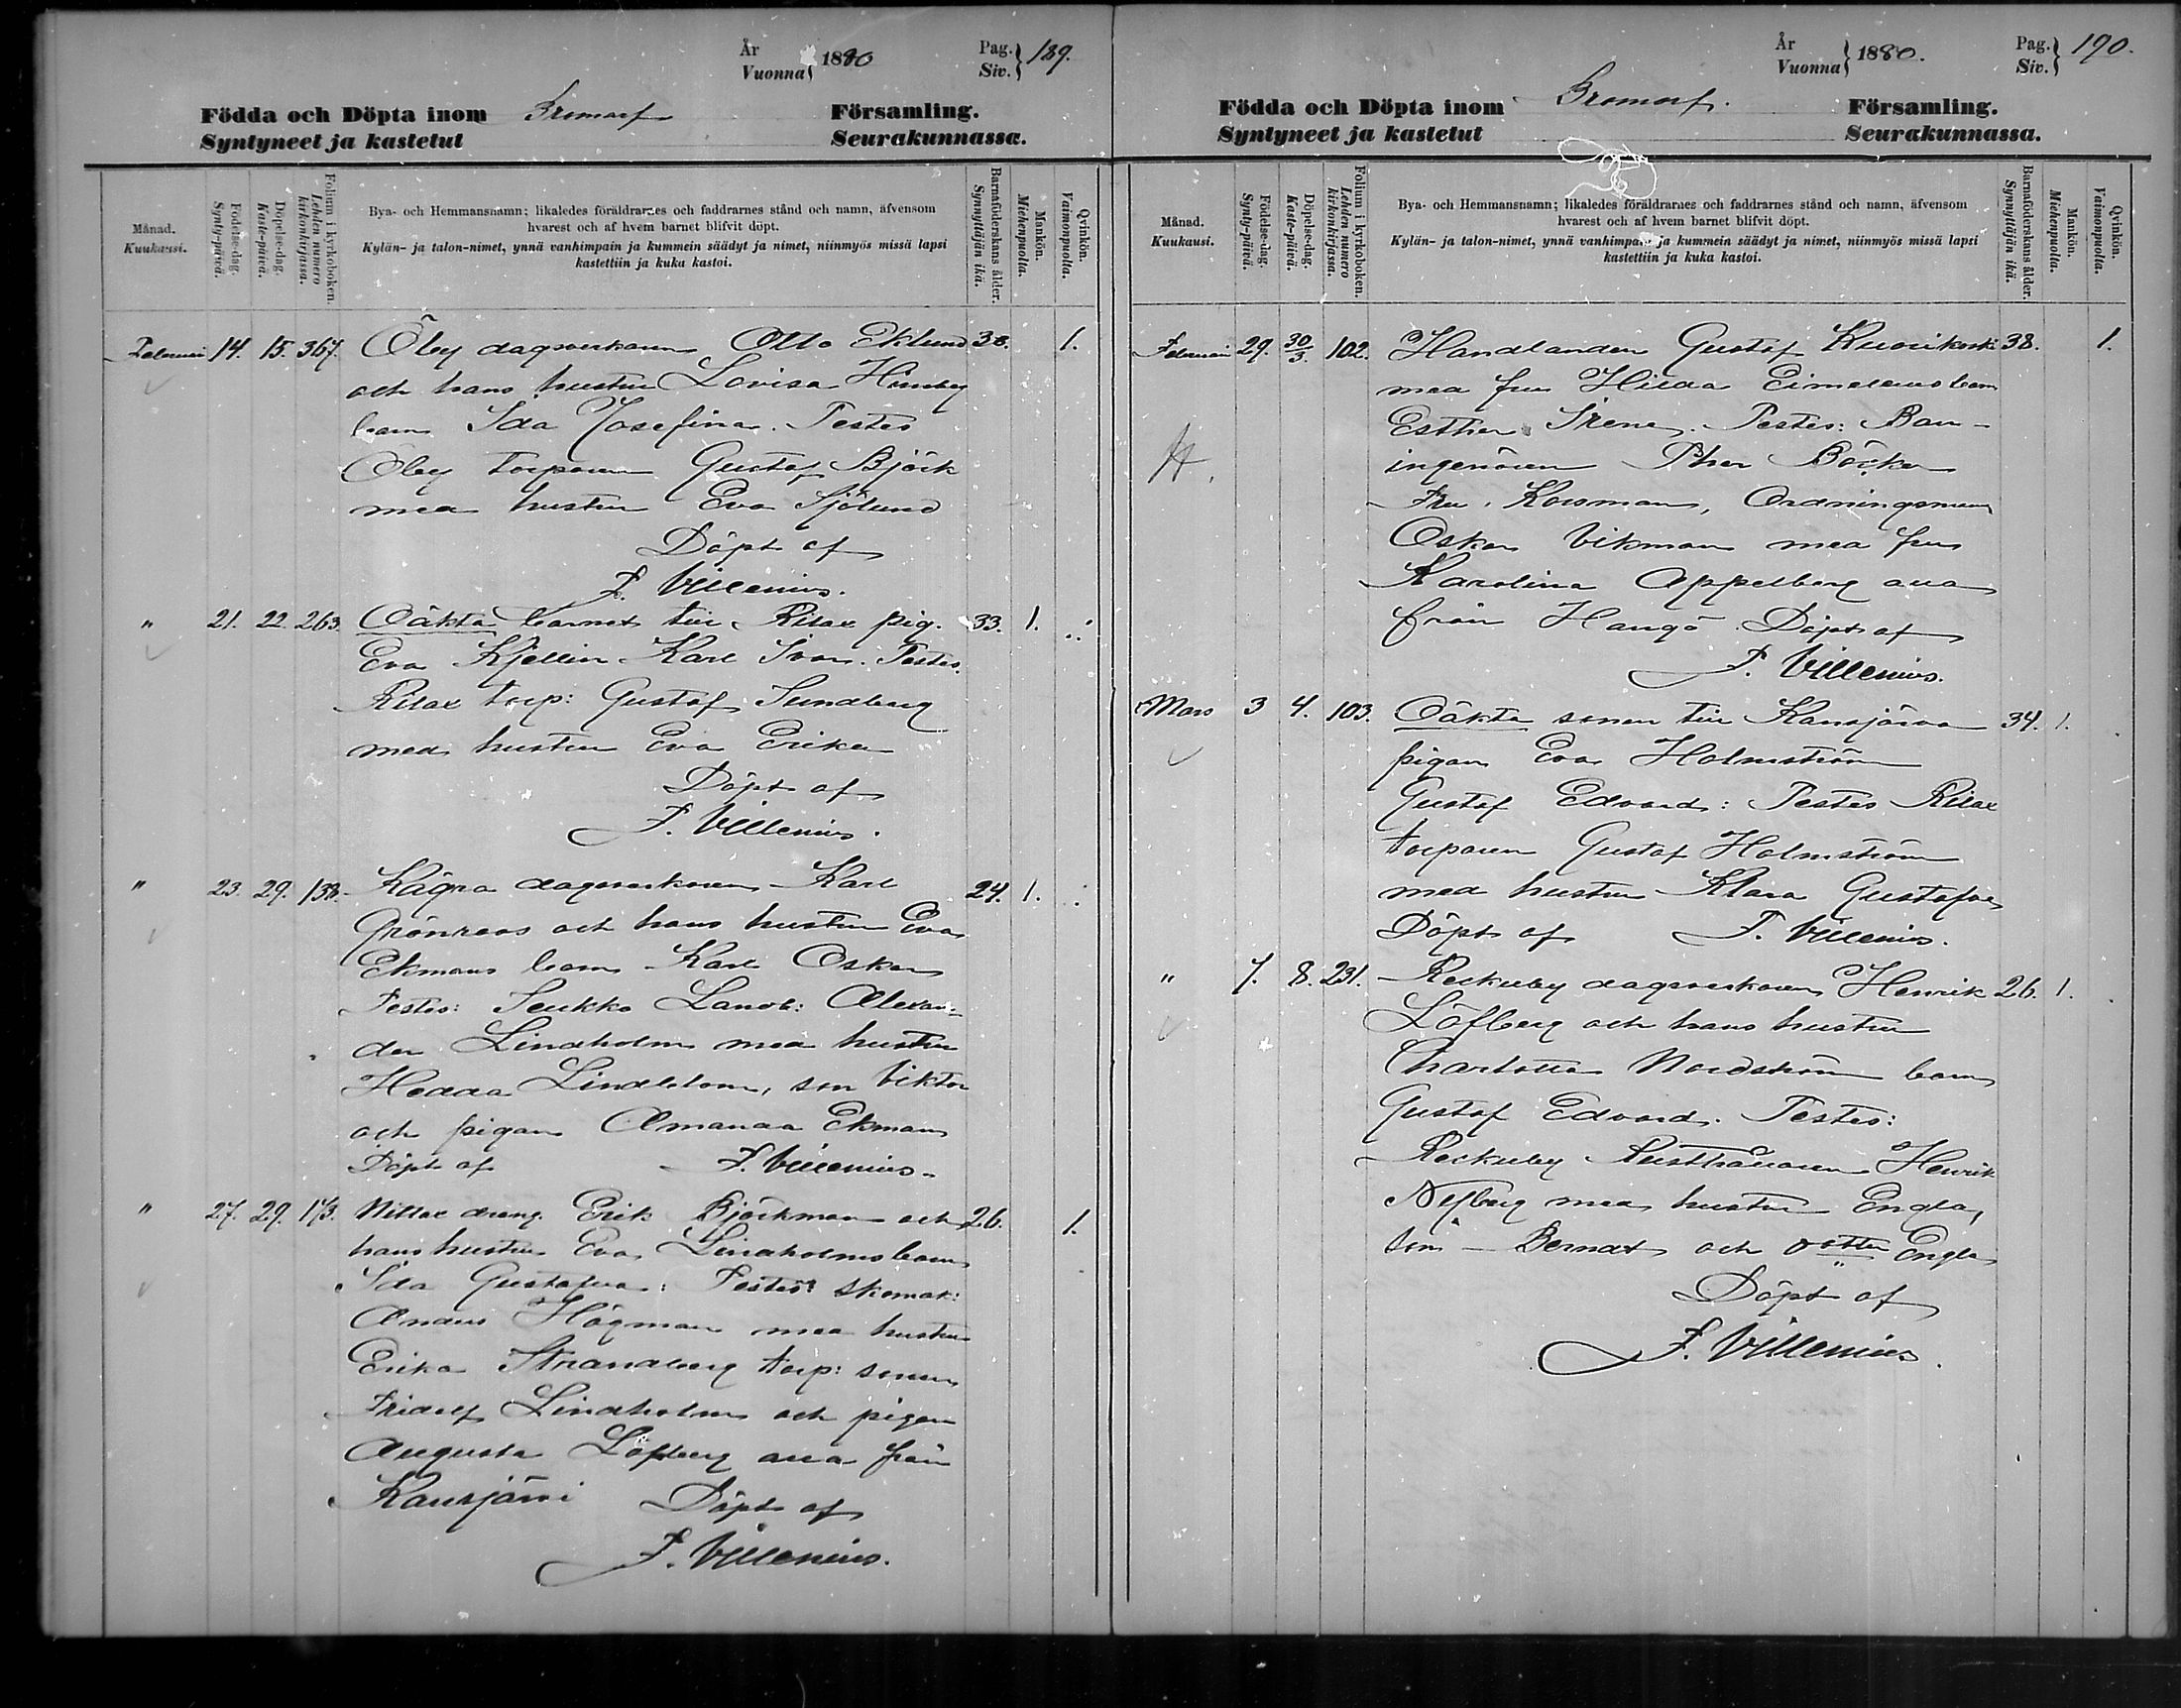 År
Vuonna } 1880
Pag.
Siv. } 189.
Födda och Döpta inom Bromarf Församling.
Syntyneet ja kastetut Seurakunnassa.
Månad.
Kuukausi.
Födelse-dag.
Synty-päivä.
Döpelse-dag.
Kaste-päivä.
Folium i kyrkoboken.
Lehden numero kirkonkirjassa.
Bya- och Hemmansnamn; likaledes föräldrarnes och faddrarnes stånd och namn, äfvensom
hvarest och af hvem barnet blifvit döpt.
Kylän- ja talon-nimet, ynnä vanhimpain ja kummein säädyt ja nimet, niinmyös missä lapsi
kastettiin ja kuka kastoi.
Barnaföderskans ålder.
Synnyttäjän ikä.
Mankön.
Miehenpuolta.
Qvinkön.
Vaimonpuolta.
Februari 14. 15. 367. Öby dagsverkaren Otto Eklund 38. 1.
och hans hustru Lovisa
barn Ida Josefina. Testes
Öby torparen Gustaf Björk
med hustru Eva Sjölund
Döpt af
F. Villenius.
" 21. 22. 263. Oäkta barnet till Rilax pig. 33. 1.
Eva Kjellin Karl Ivar. Testes.
Rilax torp: Gustaf Sundberg
med hustru Eva Erika
Döpt af
F. Villenius.
" 23. 29. 138. Kägra dagsverkaren Karl 24. 1.
Grönroos och hans hustru Eva
Ekmans barn Karl Oskar
Testes: Landb: Alexan-
der Lindholm med hustru
Hedda Lindblom, son Viktor
och pigan Amanda Ekman
Döpt af F. Villenius.
" 27. 29. 173. Nitlax dreng. Erik Björkman och 26. 1.
hans hustru Eva Lindholms barn
Ida Gustafva: Testes: skomak:
Anders Högman med hustru
Erika Strandberg torp: sonen
Fridolf Lindholm och pigan
Augusta Löfberg alla från
Kansjärvi Döpt af
F. Villenius.
År
Vuonna } 1880.
Pag.
Siv. } 190.
Födda och Döpta inom Bromarf. Församling.
Syntyneet ja kastetut Seurakunnassa.
Månad.
Kuukausi.
Födelse-dag.
Synty-päivä.
Döpelse-dag.
Kaste-päivä.
Folium i kyrkoboken.
Lehden numero kirkonkirjassa.
Bya- och Hemmansnamn; likaledes föräldrarnes och faddrarnes stånd och namn, äfvensom
hvarest och af hvem barnet blifvit döpt.
Kylän- ja talon-nimet, ynnä vanhimpain ja kummein säädyt ja nimet, niinmyös missä lapsi
kastettiin ja kuka kastoi.
Barnaföderskans ålder.
Synnyttäjän ikä.
Mankön.
Miehenpuolta.
Qvinkön.
Vaimonpuolta.
Februari 29. 30/3. 102. Handlanden Gustaf Kuosikoski 38. 1.
med fru Hilda barn
Esther Irene. Testes: Ban-
ingenören Ther Böcker
Fru Korsman, Ordningsman
Oskar Vikman med fru
Karolina Appelberg alla
från Hangö Döpt af
F. Villenius.
Mars 3 4. 103. Oäkta sonen till Kansjärvi 34. 1.
pigan Eva Holmström
Gustaf Edvard: Testes Rilax
torparen Gustaf Holmström
med hustru Klara Gustafva
Döpt af F. Villenius.
" 7. 8. 231. Reckuby dagsverkaren Henrik 26. 1.
Löfberg och hans hustru
Charlotta Nordström barn
Gustaf Edvard. Testes:
Reckuby Rusthållaren Henrik
Nyberg med hustru Engla,
son Berndt och dotter Engla
Döpt af
F. Villenius.